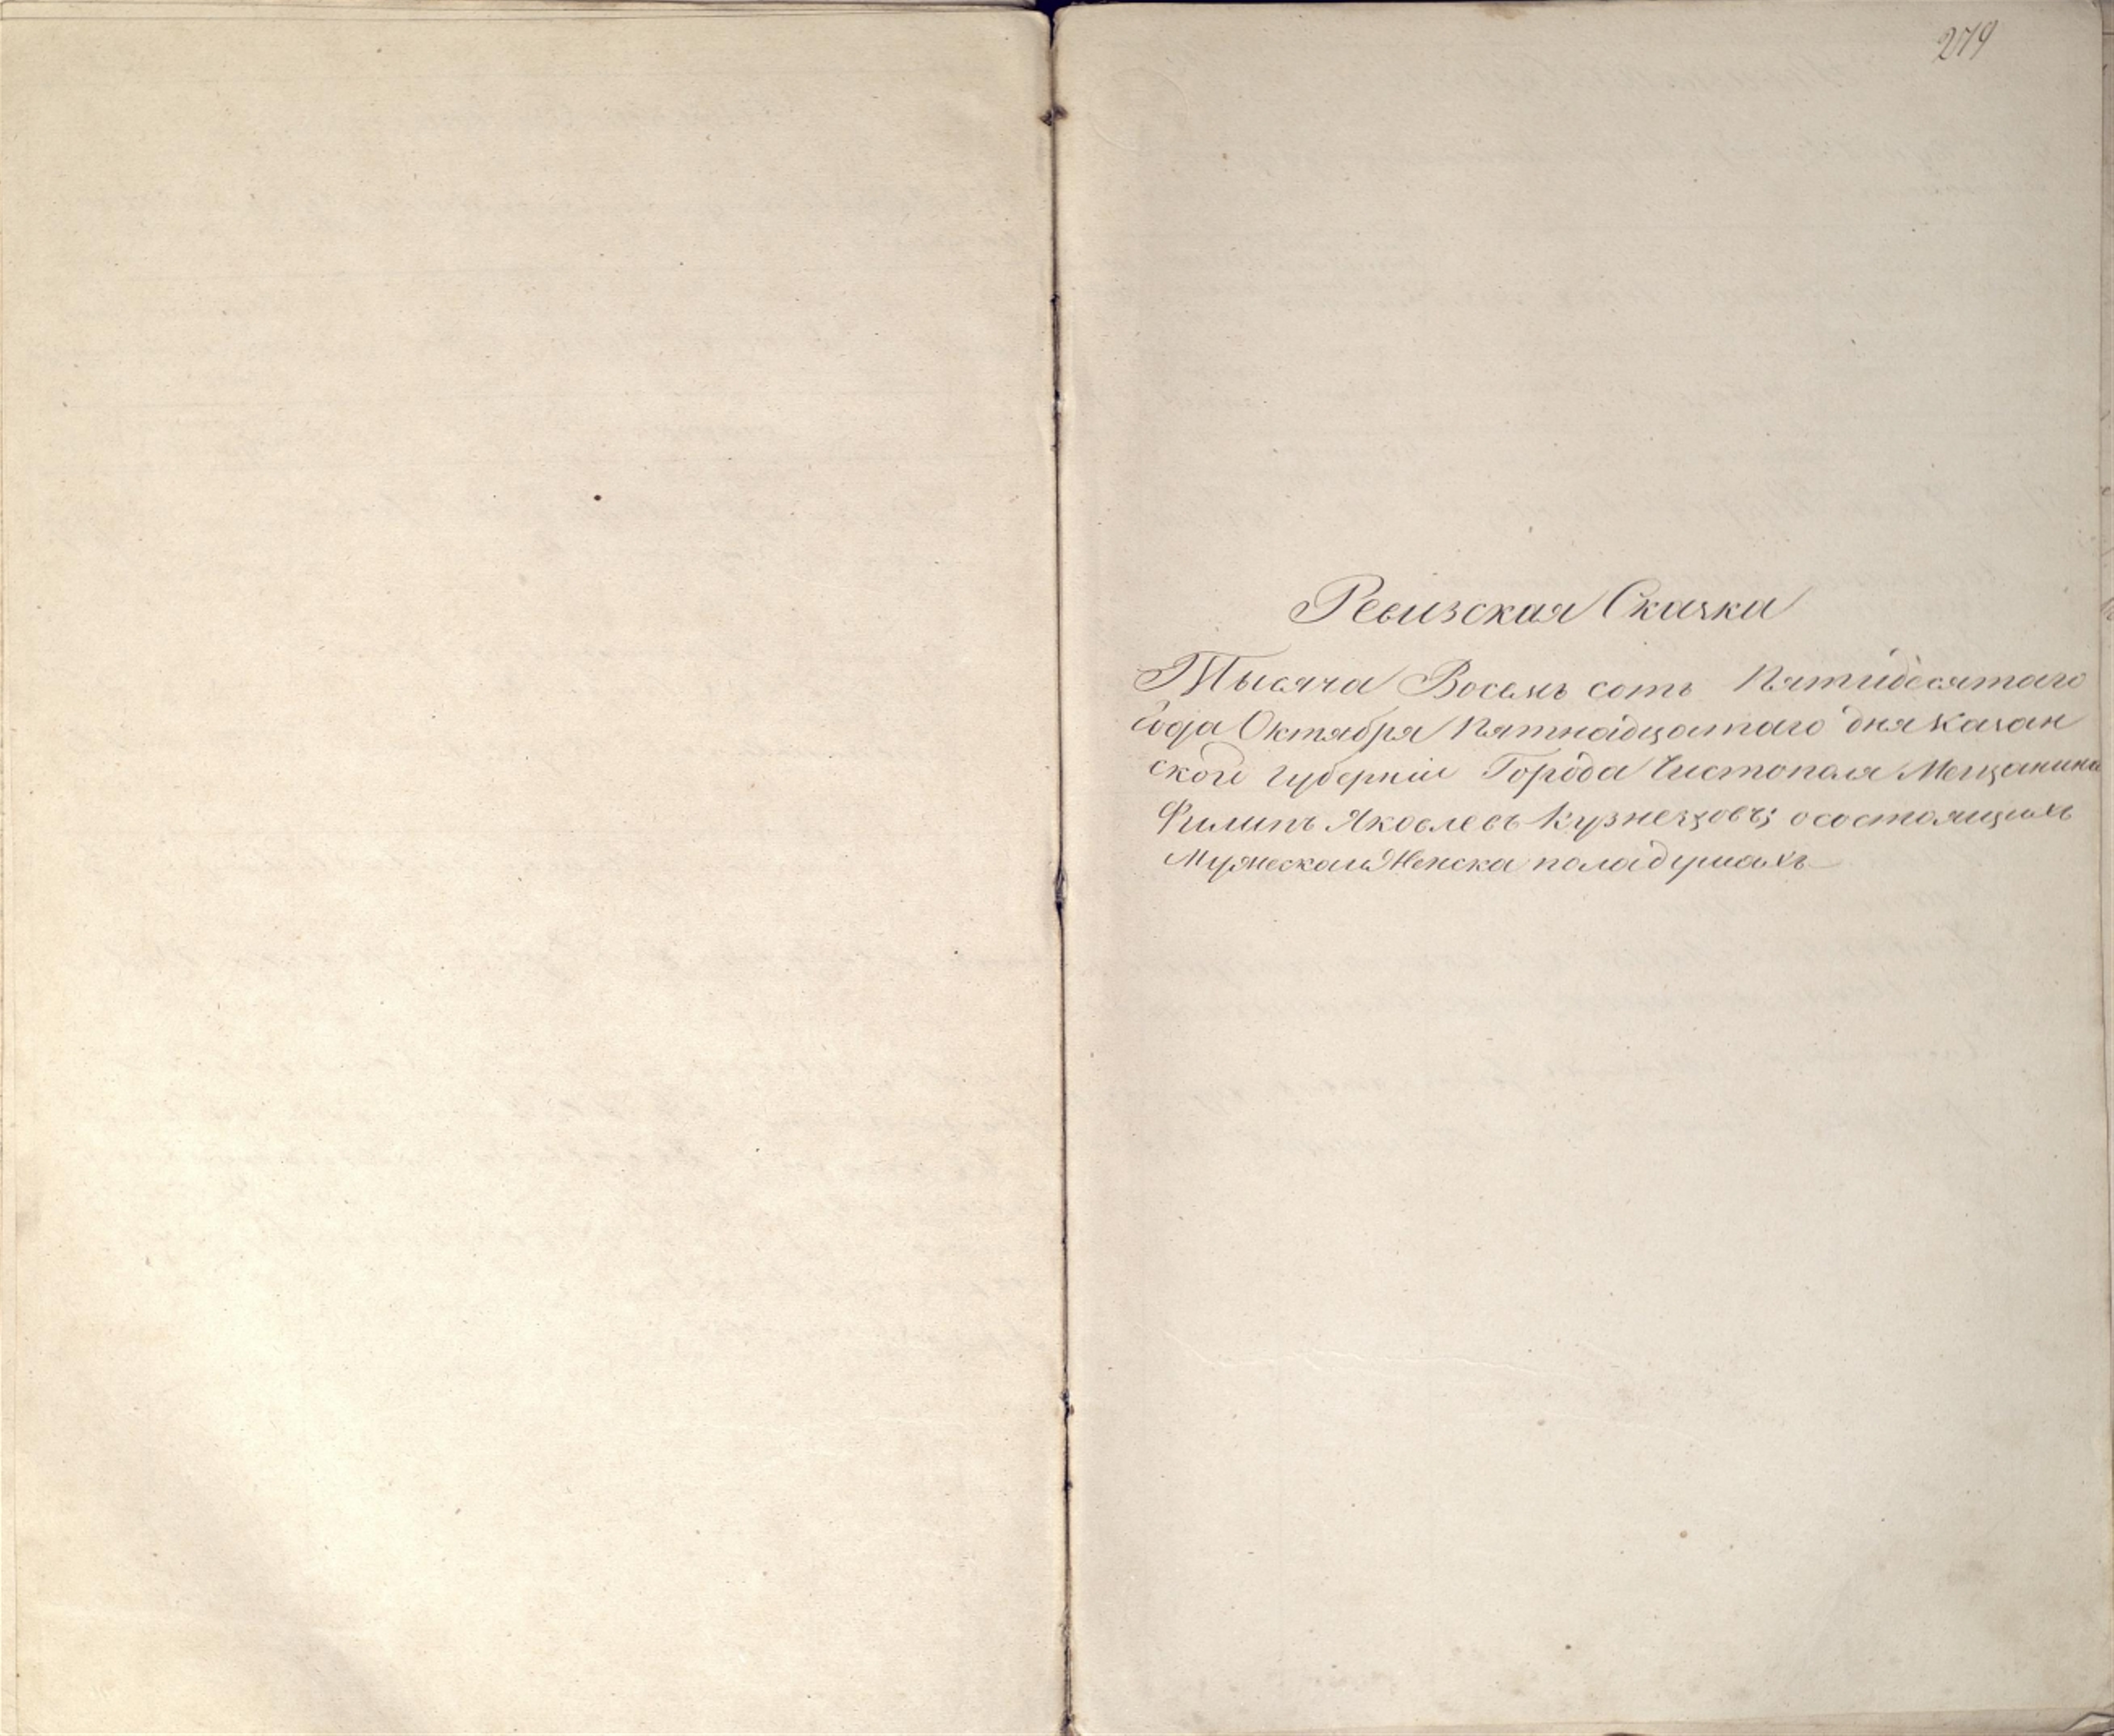 279
Ревизская Сказка
Тысяча Восемь сотъ Пятидесятаго
Года Октября Пятнадцатаго дня Казан
ской губерніи Города Чистополя Мещанина
Филипъ Яковлевъ Кузнецовъ; осостоящихъ
Мужескаи Женска поладушахъ